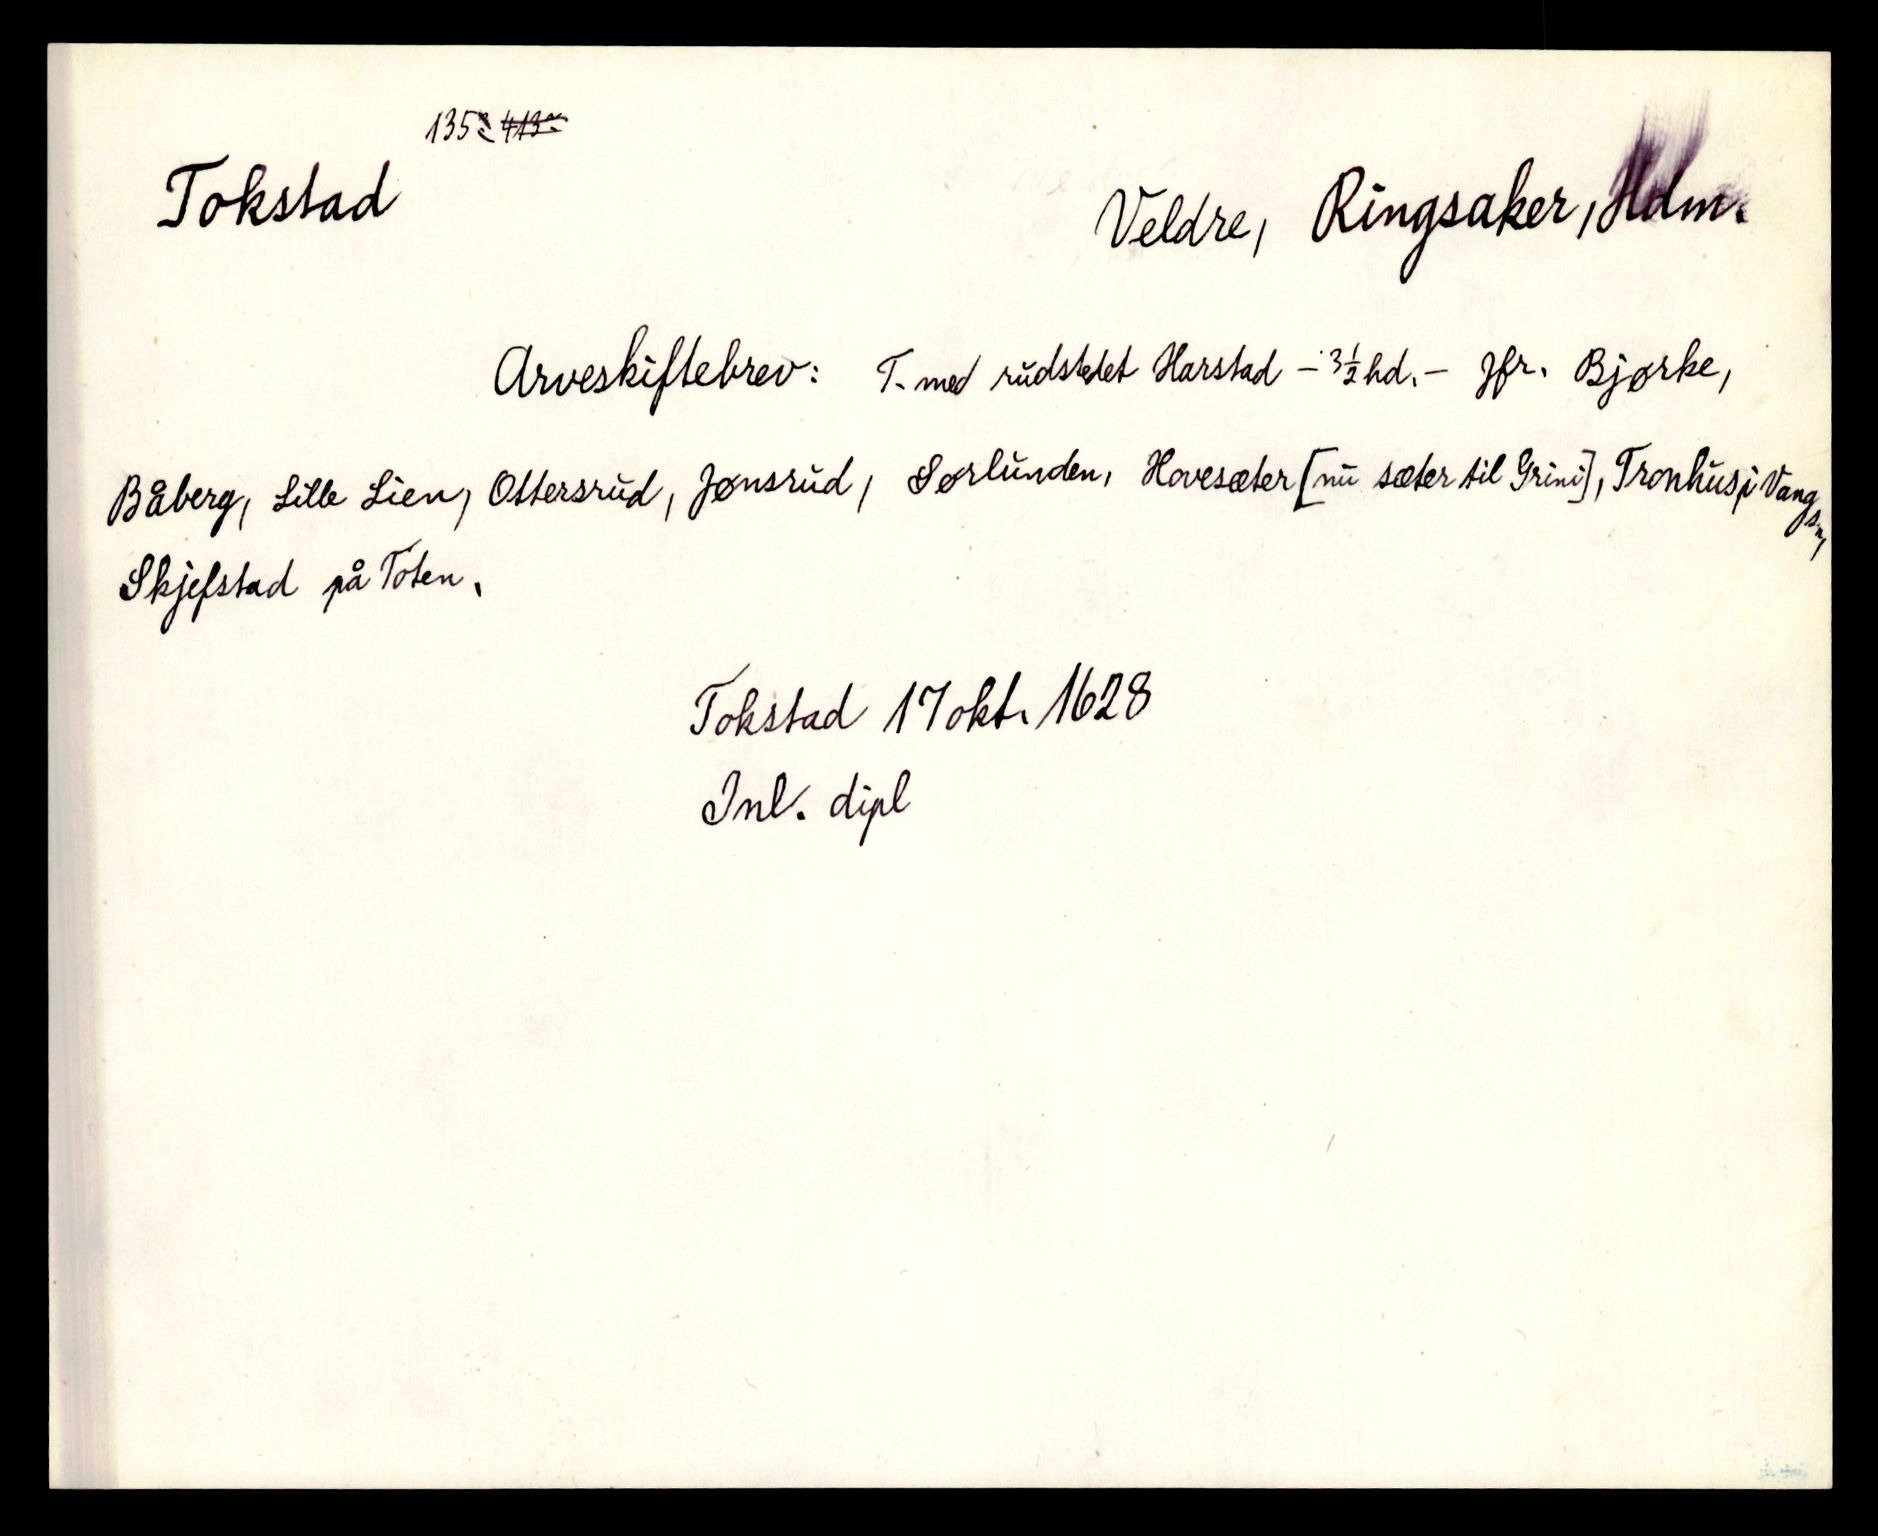 135
Tokstad
Veldre, Ringsaker, Hdm.
Arveskiftebrev: T. med rudstedet Harstad – 3½ hd. – Jfr. Bjørke,
Båberg, Lille Lien, Ottersrud, Jønsrud, Sørlunden, Hovesæter [nu sæter til Grini], Tronhus i Vang s.,
Skjefstad på Toten.
Tokstad 17 okt. 1628
Inl. dipl